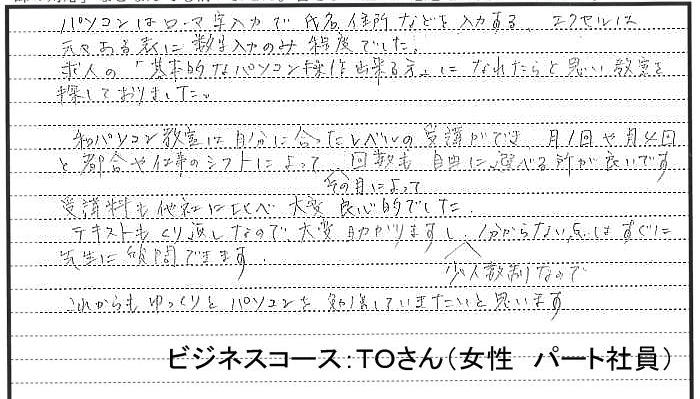 パソコンはローマ字入力で氏名、住所などを入力する、エクセルは
元々ある表に数字入力のみ程度でした。
求人の「基本的なパソコン操作出来る方」になれたらと思い教室を
探しておりました。
和パソコン教室は自分に合ったレベルの受講ができ 月1回や月4回
と都合や仕事のシフトによって 回数も自由に選べる所が良いです
その月によって
受講料も他社に比べ大変良心的でした。
テキストもくり返しなので大変助かりますし、分からない点はすぐに
先生に質問できます。
少人数制なので
これからもゆっくりとパソコンを勉強していきたいと思います
ビジネスコース：TOさん（女性　パート社員）